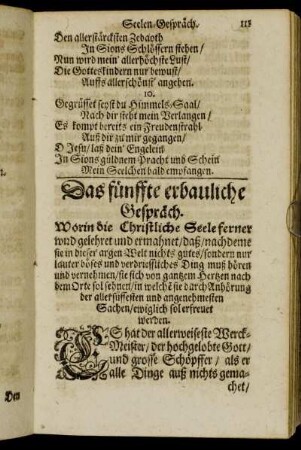 Seelen-Gespräch. 113
Den allerstärcksten Zebaoth
In Sions Schlössern stehen/
Nun wird mein' allerhöchste Lust/
Die Gotteskindern nur bewust/
Auffs allerschönst' angehen.
10.
Gegrüsset seyst du Himmels-Saal/
Nach dir steht mein Verlangen/
Es kompt bereits ein Freudenstrahl
Auß dir zu mir gegangen/
O Jesu/ laß dein' Engelein
In Sions güldnem Pracht und Schein
Mein Seelchen bald empfangen.
Das fünffte erbauliche
Gespräch.
Worin die Christliche Seele ferner
wird gelehret und ermahnet/ daß/ nachdeme
sie in dieser argen Welt nichts gutes/ sondern nur
lauter böses und verdrießliches Ding muß hören
und vernehmen/ sie sich von gantzem Hertzen nach
dem Orte sol sehnen/ in welchē sie durch Anhörung
der aller süssesten und angenehmesten
Sachen/ ewiglich sol erfreuet
werden.
ES hat der allerweiseste Werck-
Meister/ der hochgelobte Gott/
und grosse Schöpffer/ als er
alle Dinge auß nichts gema-
chet/
Den